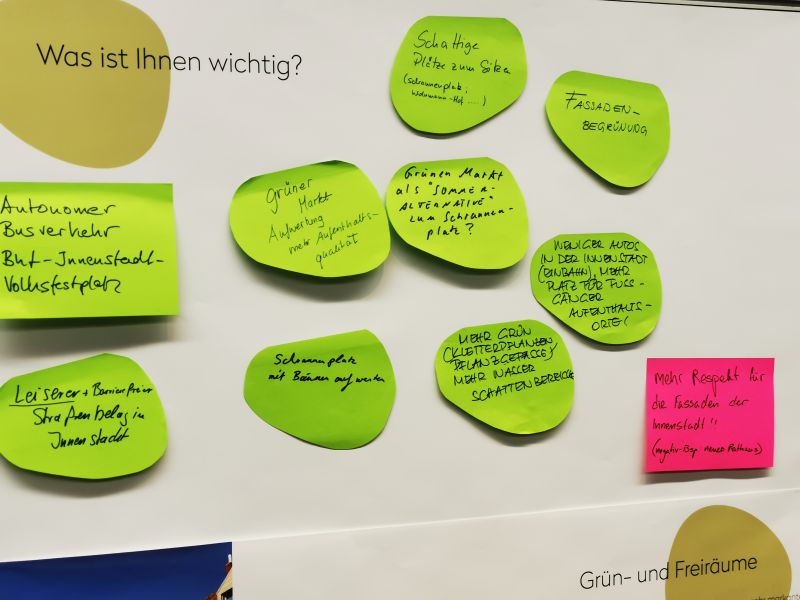 Was ist Ihnen wichtig?
Schattige
Plätze zum Sitzen
(Schrannenplatz,
FASSADEN-
BEGRÜNUNG
Autonomer
Busverkehr
Bhf-Innenstadt-
Volksfestplatz
Grüner
Markt
Aufwertung
mehr Aufenthalts-
qualität
Grünen Markt
als "SOMMER-
ALTERNATIVE"
zum Schrannen-
platz?
WENIGER AUTOS
IN DER INNENSTADT
(EINBAHN), MEHR
PLATZ FÜR FUSS-
GÄNGER
AUFENTHALTS-
ORTE!
Leiserer + Barrierefreier
Straßenbelag in
Innenstadt
Schrannenplatz
mit Bäumen aufwerten
MEHR GRÜN
(KLETTERPFLANZEN,
PFLANZGEFÄSSE)
MEHR WASSER
SCHATTENBEREICHE
Mehr Respekt für
die Fassaden der
Innenstadt!!
(negativ-Bsp. neues Rathaus)
Grün- und Freiräume